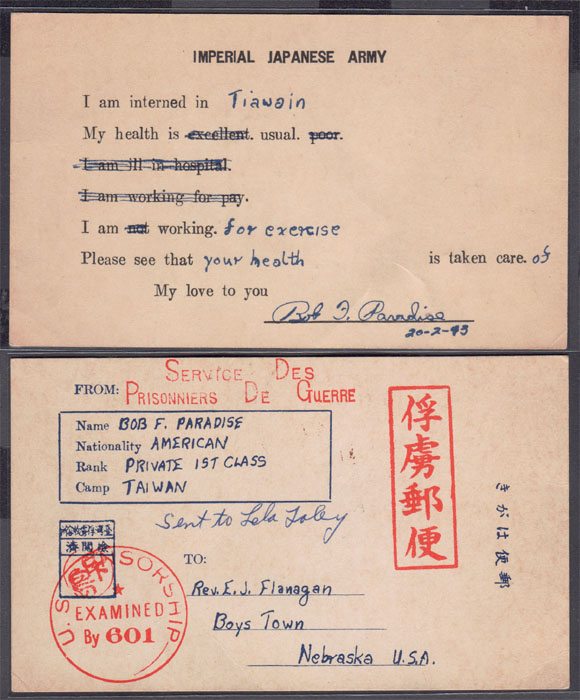 IMPERIAL JAPANESE ARMY
I am interned in Tiawain
My health is excellent. usual. poor.
I am ill in hospital.
I am working for pay.
I am not working. for exercise
Please see that your health is taken care. of
My love to you
Bob F. Paradise
20-2-43
SERVICE DES
PRISONNIERS DE GUERRE
FROM:
Name BOB F. PARADISE
Nationality AMERICAN
Rank PRIVATE 1ST CLASS
Camp TAIWAN
俘虜郵便
きがは便郵
Sent to Lela Foley
濟閲檢
U.S. CENSORSHIP
EXAMINED
By 601
TO:
Rev. E. J. Flanagan
Boys Town
Nebraska U.S.A.